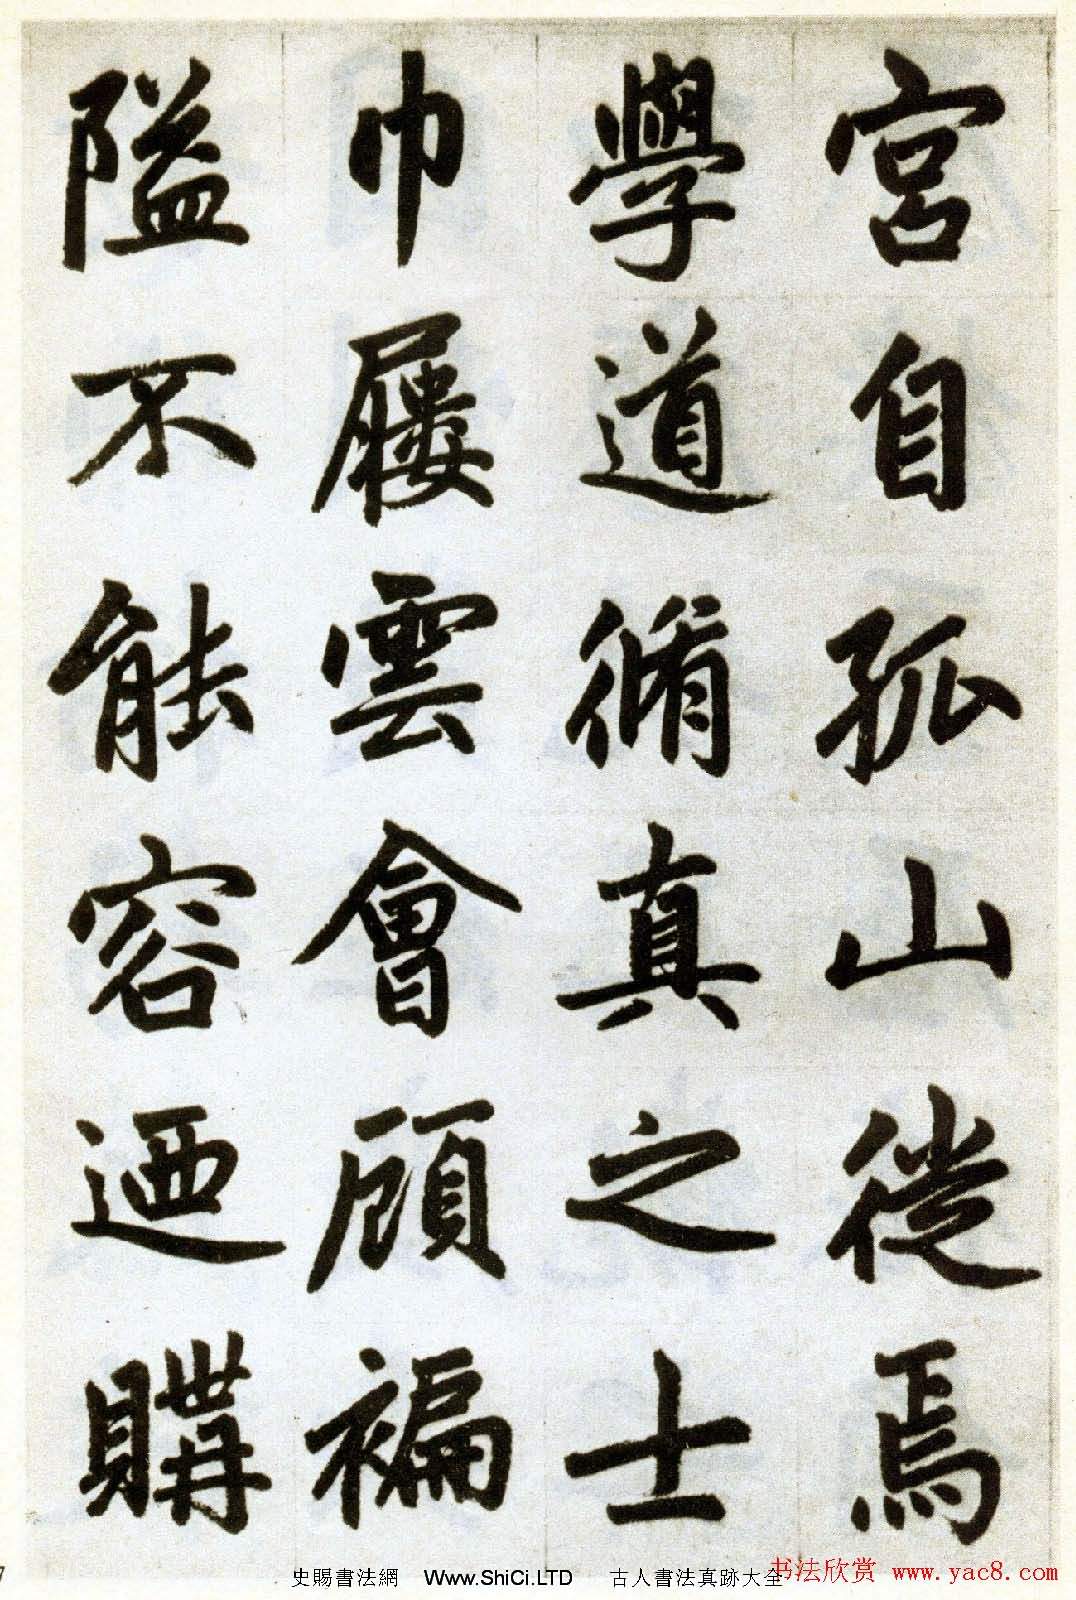 宮自孤山徙焉
學道脩真之士
巾屨雲會顧褊
隘不能容迺購
7
史賜書法網 Www.ShiCi.LTD 古人書法真跡大全
书法欣赏 www.yac8.com